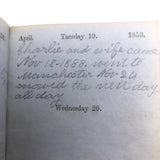 April. Tuesday 19. 1853.
Charlie and wife came
Nov 18. 1888. went to
Manchester Nov 24
snowed the next day
all day
Wednesday 20.